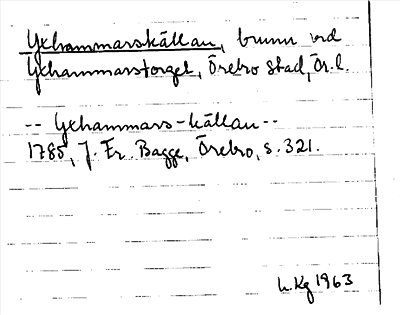 Yxhammarskällan, brunn vid
Yxhammarstorget, Örebro stad, Ör. l.
-- Yxhammars-källan --
1785, J. Fr. Bagge, Örebro, s. 321.
L. Kg 1963